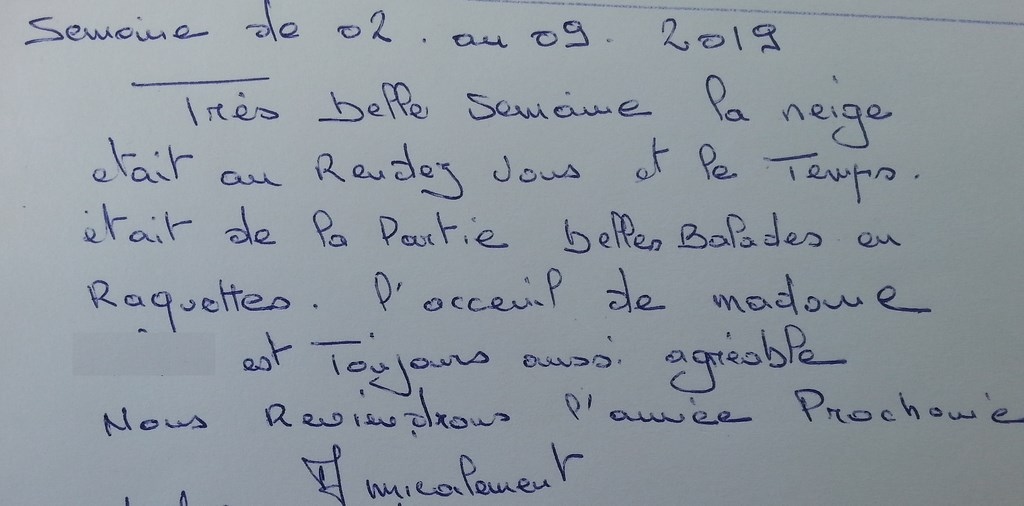 Semaine de 02. au 09. 2019
Très belle semaine la neige
etait au Rendez vous et le Temps.
était de la Partie belles Balades en
Raquettes. l'acceuil de madame
est Toujours aussi agréable
Nous Reviendrons l'année Prochaine
Amicalement